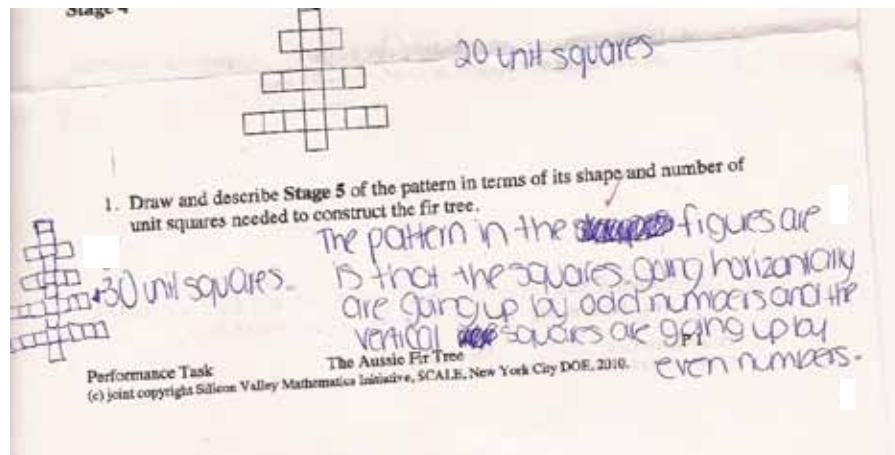 Stage 4
20 unit squares
1. Draw and describe Stage 5 of the pattern in terms of its shape and number of
unit squares needed to construct the fir tree.
30 unit squares.
The pattern in the figures are
is that the squares going horizontally
are going up by odd numbers and the
vertical squares are going up by
even numbers.
P1
Performance Task
The Aussie Fir Tree
(c) joint copyright Silicon Valley Mathematics Initiative, SCALE, New York City DOE, 2010.